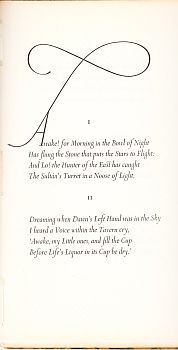 I
Awake! for Morning in the Bowl of Night
Has flung the Stone that puts the Stars to Flight:
And Lo! the Hunter of the East has caught
The Sultán's Turret in a Noose of Light.
II
Dreaming when Dawn's Left Hand was in the Sky
I heard a Voice within the Tavern cry,
'Awake, my Little ones, and fill the Cup
Before Life's Liquor in its Cup be dry.'